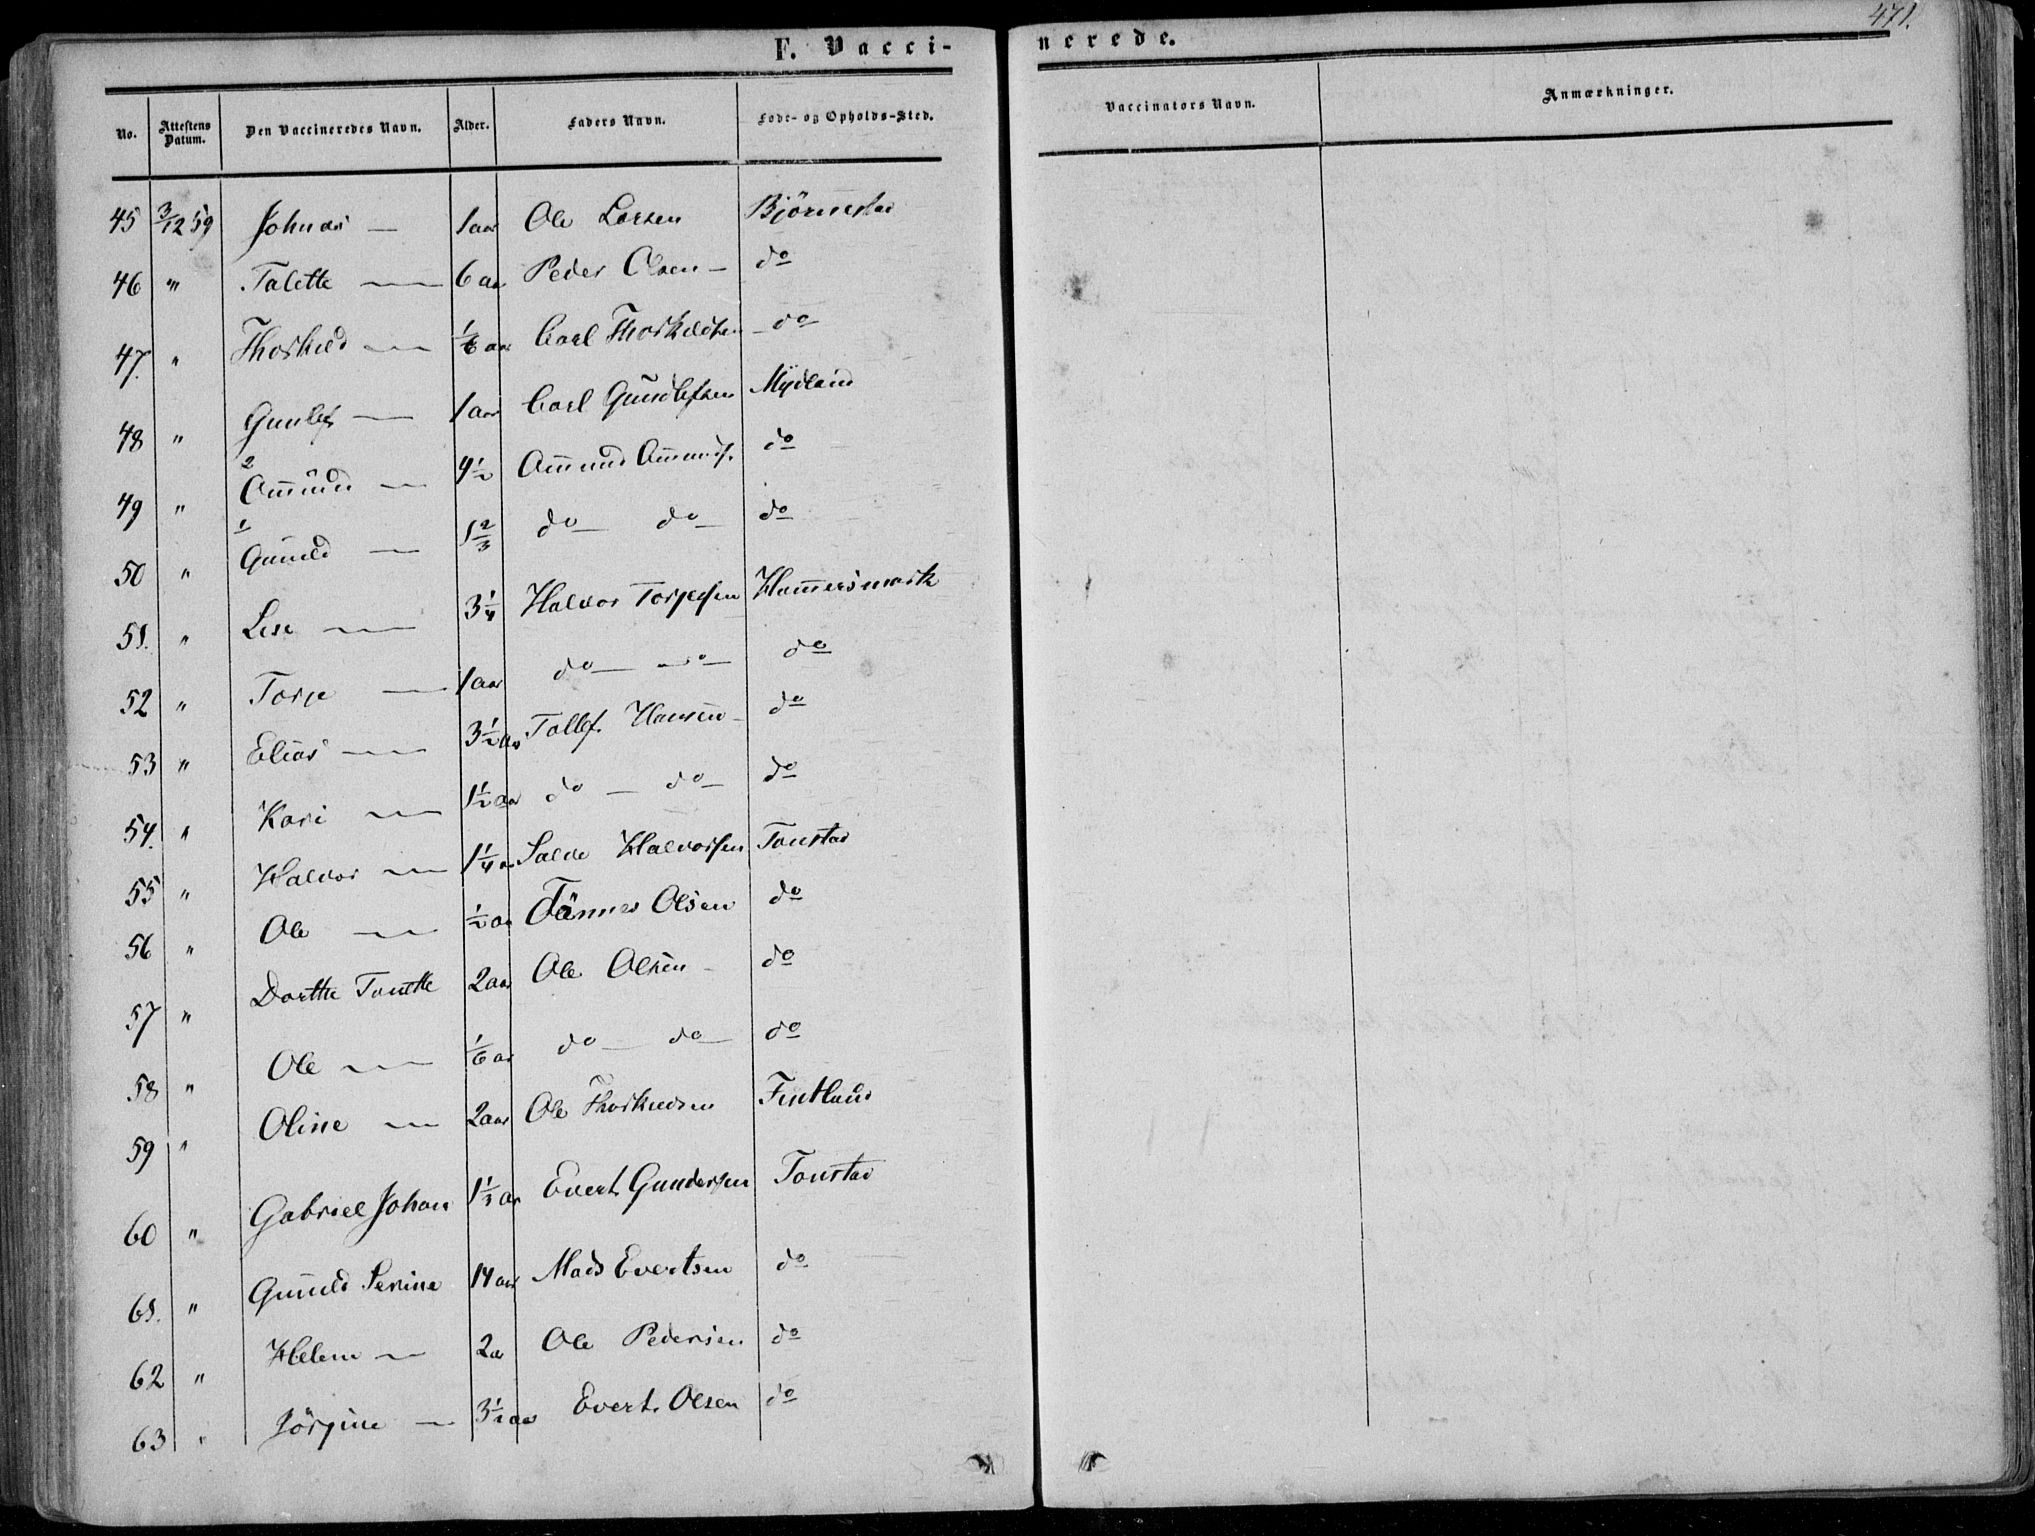 471.
F. Vacci-
nerede.
No. Attestens Datum. Den Vaccineredes Navn. Alder. Faders Navn. Føde- og Opholds-Sted. Vaccinators Navn. Anmærkninger.
45 3/12 59 Johnas — 1 aar Ole Larsen Björnestad
46 " Talette — 6 aar Peder Olsen — do
47. " Thorkild — 1/6 aar Carl Thorkildsen — do
48 " Gunlef — 1 aar Carl Gundlefsen Mydland
49 " 2 Ommund — 4 1/2 Ommund Ommunds. do
50 " 1 Gunild — 1 2/3 do — do — do
51. " Lise — 3 1/4 Halvor Torjesen Hammersmark
52 " Torje — 1 aar do — do — do
53 " Elias — 3 1/2 aar Tollef Hansen — do
54. " Kari — 1 1/2 aar do — do — do
55 " Halvor — 1 1/4 aar Salve Halvorsen Tonstad
56 " Ole — 1/2 aar Tönnes Olsen do
57 " Dorthe Tonette 2 aar Ole Olsen — do
58 " Ole — 1/6 aar do — do — do
59 " Oline — 2 aar Ole Thorkildsen Fintland
60 " Gabriel Johan 1 1/3 aar Evert Gundersen Tonstad
61. " Gunild Serine 14 aar Mads Evertsen do
62 " Helene — 2 a Ole Pedersen do
63 " Jörgine — 3 1/2 aar Evert Olsen do